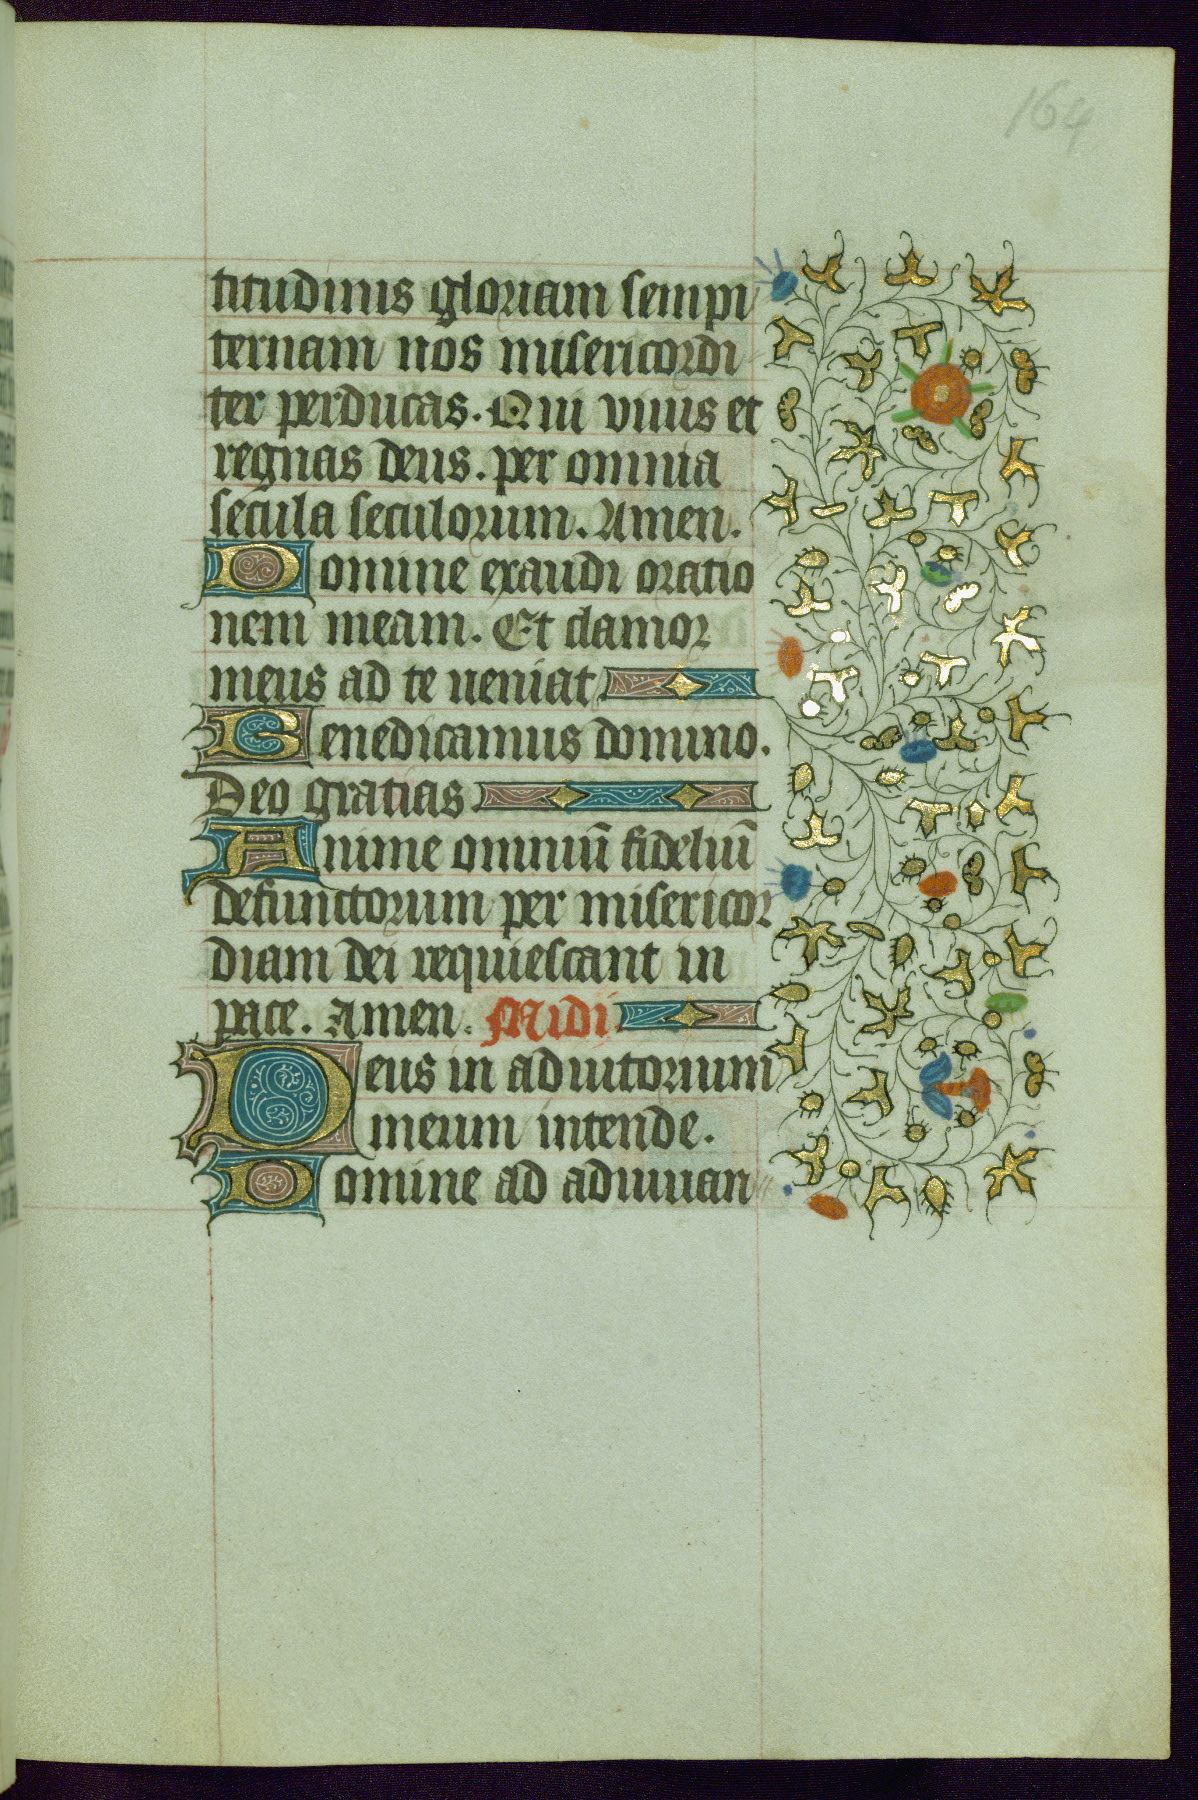 164
titudinis gloriam sempi
ternam nos misericordi
ter perducas. Qui viuis et
regnas deus. per omnia
secula seculorum. Amen.
Domine exaudi oratio
nem meam. Et clamor
meus ad te ueniat
Benedicamus domino.
Deo gratias
Anime omniū fideliū
defunctorum per misericor
diam dei requiescant in
pace. Amen. Midi
Deus in adiutorium
meum intende.
Domine ad adiuuan